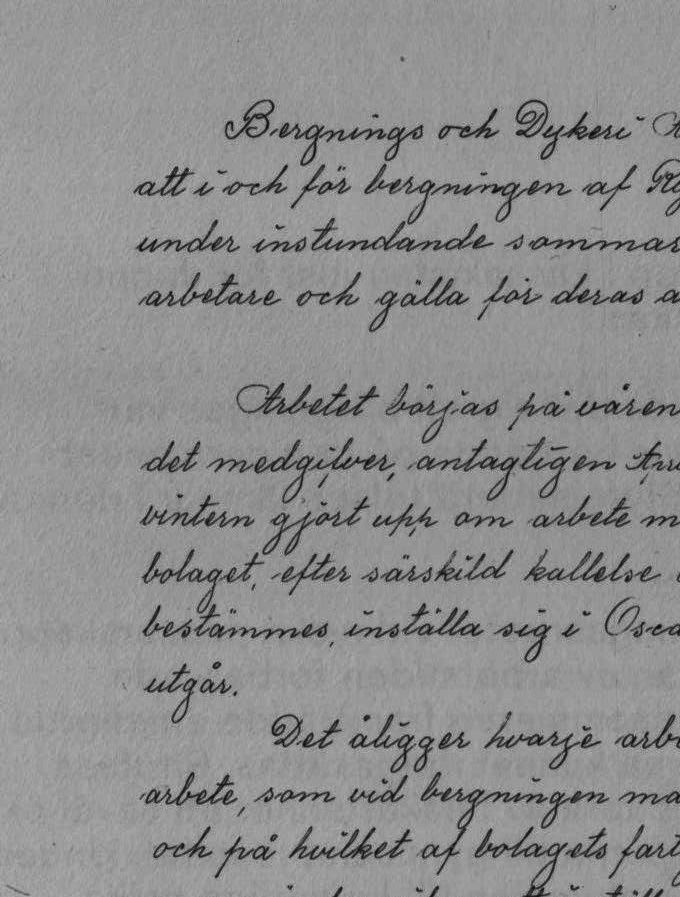 Bergnings och Dykeri
att i och för bergningen af
under instundande sommar
arbetare och gälla för deras a
Arbetet börjas på våren
det medgifver, antagligen Apr
vintern gjört upp om arbete m
bolaget, efter särskild kallelse
bestämmes, inställa sig i Osca
utgår.
Det åligger hvarje arb
arbete, som vid bergningen ma
och på hvilket af bolagets fart